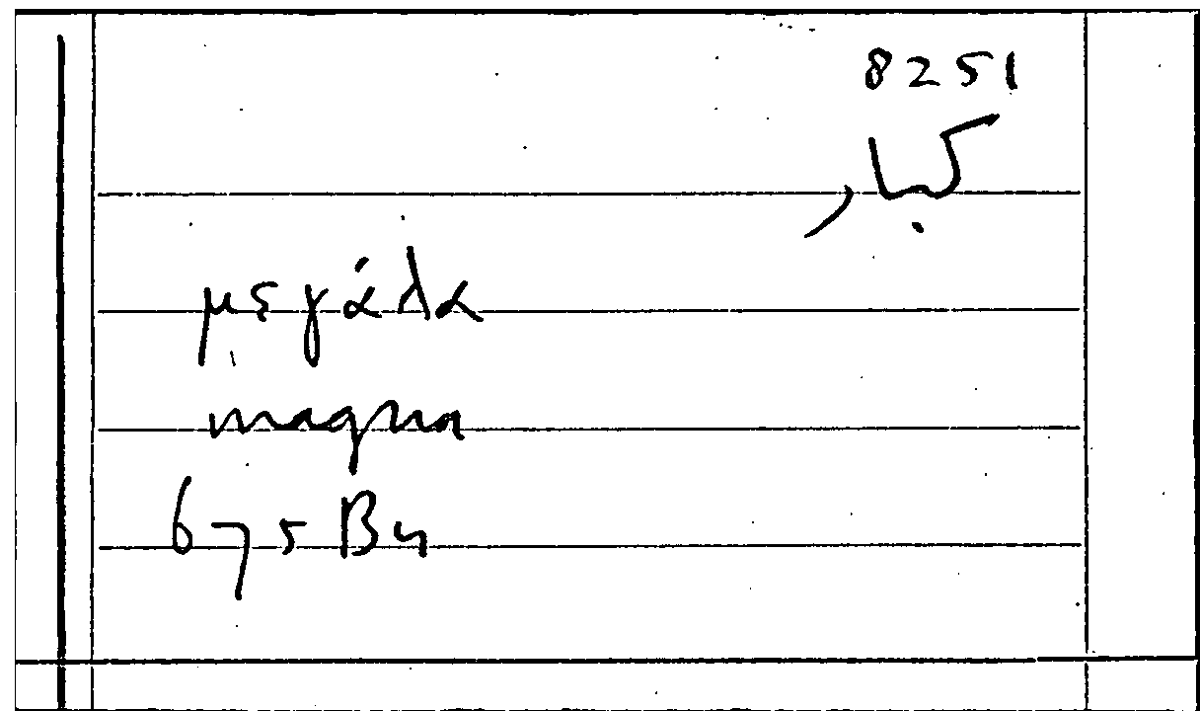 8251
كبار
μεγάλα
magna
675 B4